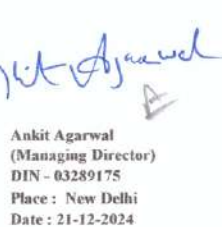 Ankit Agarwal
(Managing Director)
DIN - 03289175
Place : New Delhi
Date : 21-12-2024